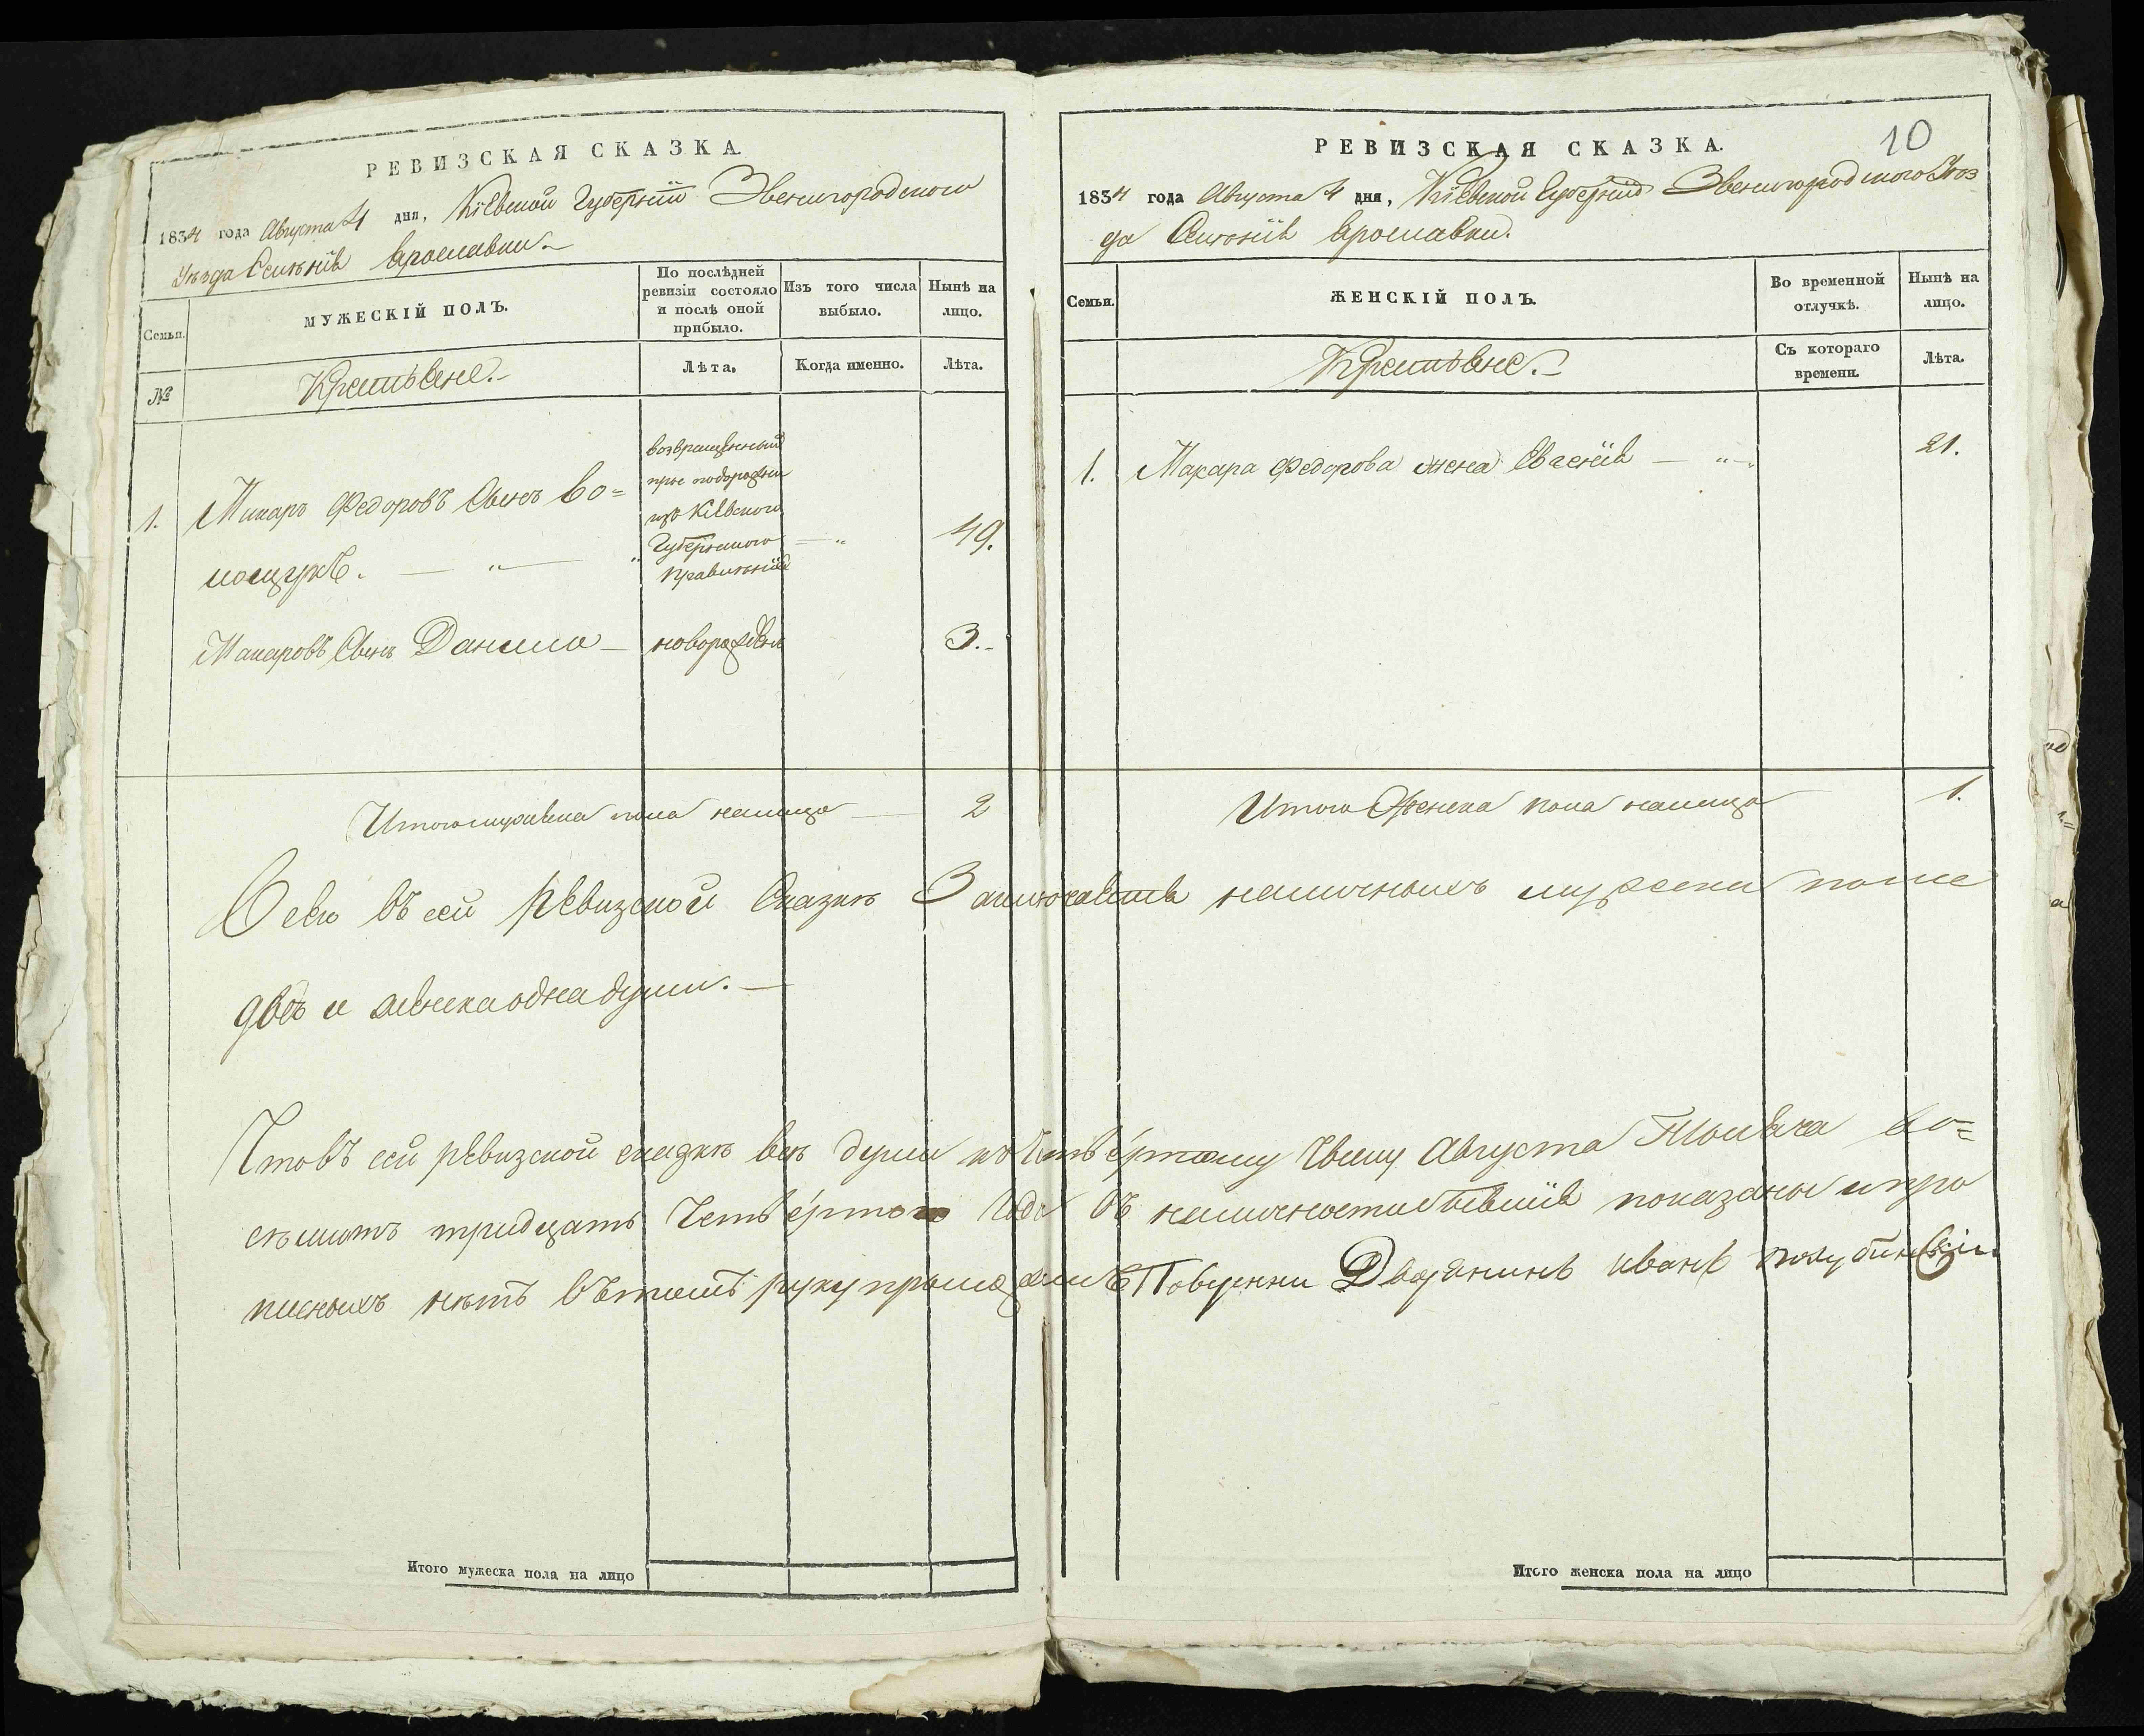 РЕВИЗСКАЯ СКАЗКА.
1834 года Августа 4 дня, Кіевской Губерніи Звенигородского
Уѣзда Селенія Ярославки
Семьи.
МУЖЕСКІЙ ПОЛЪ.
По послѣдней ревизіи состояло и послѣ оной прибыло.
Изъ того числа выбыло.
Нынѣ на лицо.
№
Крестьяне.
Лѣта.
Когда именно.
Лѣта.
возвращенный
из Кіевского
Губернского
Правленія
1. Макаръ Федоровъ Сынъ 49.
Макаровъ Сынъ Данило — новорожден 3.
Итого мужеска пола налицо — 2
РЕВИЗСКАЯ СКАЗКА.
10
1834 года Августа 4 дня, Кіевской Губерніи Звенигородского Уѣз
да Селенія Ярославки.
Семьи.
ЖЕНСКІЙ ПОЛЪ.
Во временной отлучкѣ.
Нынѣ на лицо.
Крестьяне.
Съ котораго времени.
Лѣта.
1. Макара Федорова жена Евгенія — 21.
Итого Женска пола налицо 1.
Всего въ сей ревизской Сказкѣ Заключается наличныхъ мужеска пола
двѣ и женска одна души. —
Что въ сей ревизской сказкѣ всѣ души к четвертому Числу Августа тысяча во=
семсотъ тридцать Четвертого Года въ наличности бывшія показаны и про
писныхъ нѣтъ въ томъ руку приложилъ Повѣренни Дворянинъ Иванъ
Итого мужеска пола на лицо
Итого женска пола на лицо